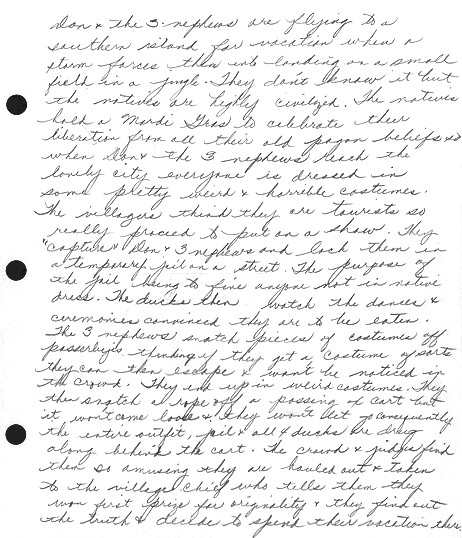 Don & the 3 nephews are flying to a
southern island for vacation when a
storm forces them into landing on a small
field in a jungle. They don't know it but
the natives are highly civilized. The natives
hold a Mardi Gras to celebrate their
liberation from all their old pagan beliefs & so
when Don & the 3 nephews reach the
lovely city everyone is dressed in
some pretty weird & horrible costumes.
The villagers think they are tourists so
really proceed to put on a show. They
"capture" Don & 3 nephews and lock them in
a temporary jail on a street. The purpose of
the jail being to fine anyone not in native
dress. The ducks then watch the dances &
ceremonies convinced they are to be eaten.
The 3 nephews snatch pieces of costumes off
passerbys thinking if they get a costume of sorts
they can then escape & won't be noticed in
the crowd. They end up in weird costumes. They
then snatch a rope off a passing cart but
it won't come loose & they won't let go consequently
the entire outfit, jail & all 4 ducks are drug
along behind the cart. The crowd & judges find
them so amusing they are hauled out & taken
to the village chief who tells them they
won first prize for originality & they find out
the truth & decide to spend their vacation there